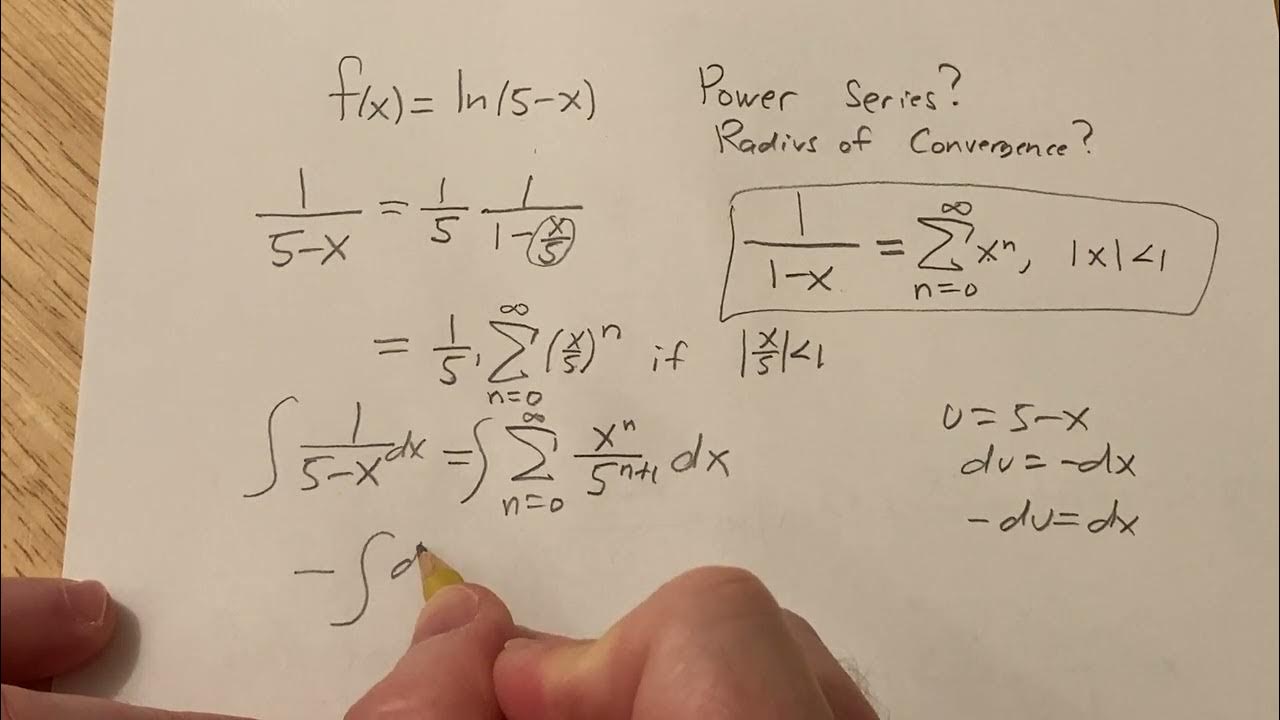 f(x) = ln(5-x)
Power Series?
Radius of Convergence?
1/(5-x) = 1/5 1/(1-(x/5))
1/(1-x) = ∑_{n=0}^{∞} xⁿ, |x|<1
= 1/5 · ∑_{n=0}^{∞} (x/5)ⁿ if |x/5|<1
∫ 1/(5-x) dx = ∫ ∑_{n=0}^{∞} xⁿ/5ⁿ⁺¹ dx
u = 5-x
du = -dx
-du = dx
- ∫ d